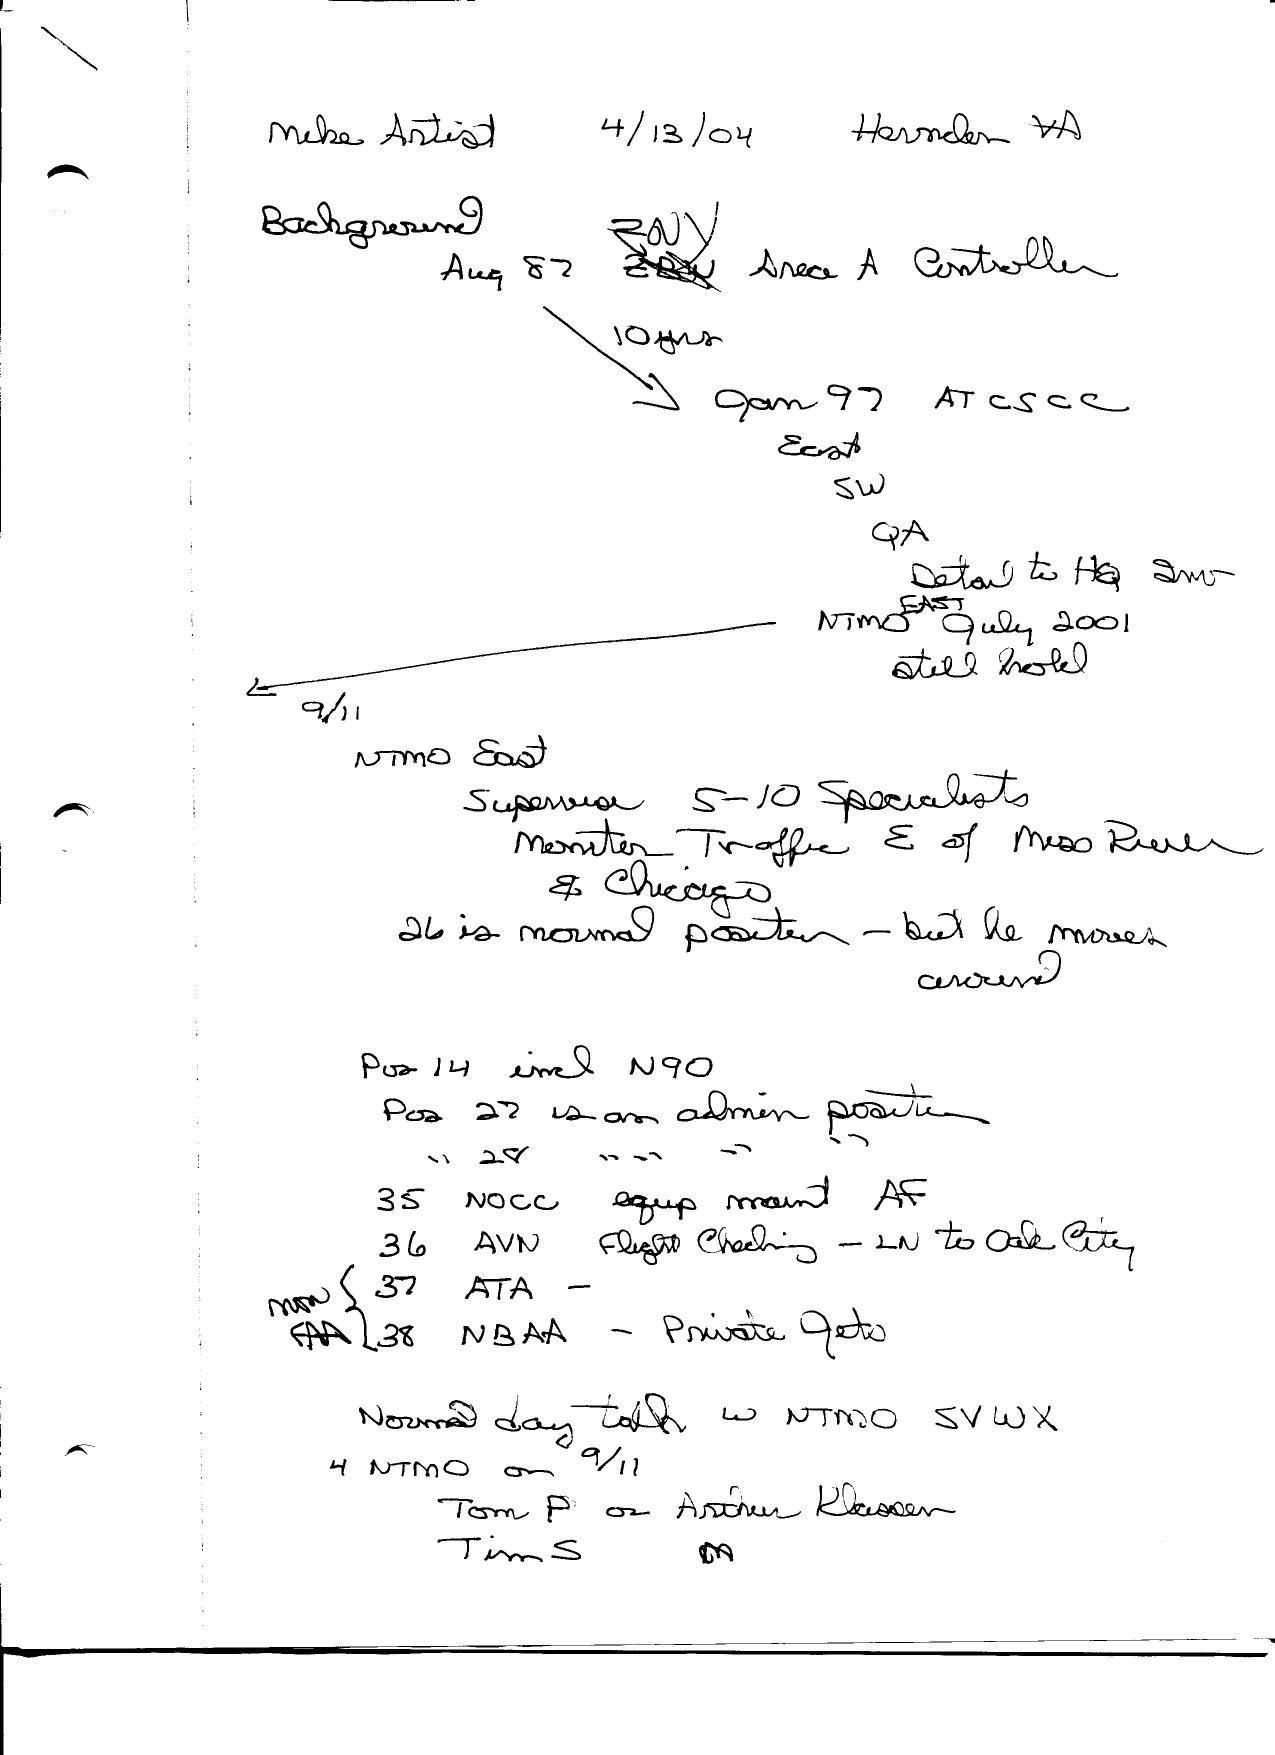 Mike Artist 4/13/04 Herndon VA
Background ZNY
Aug 87 Area A Controller
10 yrs
Jan 97 ATCSCC
East
SW
QA
Detail to HQ 2mo
EAST
NTMO July 2001
still hold
9/11
NTMO East
Supervise 5-10 Specialists
Monitor Traffic E of Miss River
& Chicago
26 is normal position - but he moves
around
Pos 14 incl N90
Pos 27 is an admin position
" 28 " " " "
35 NOCC equp maint AF
36 AVN Flight Checking - LN to Oak City
non { 37 ATA -
FAA 38 NBAA - Private Jets
Normal day talk w NTMO SVWX
4 NTMO on 9/11
Tom P or Arthur Klassen
Tim S